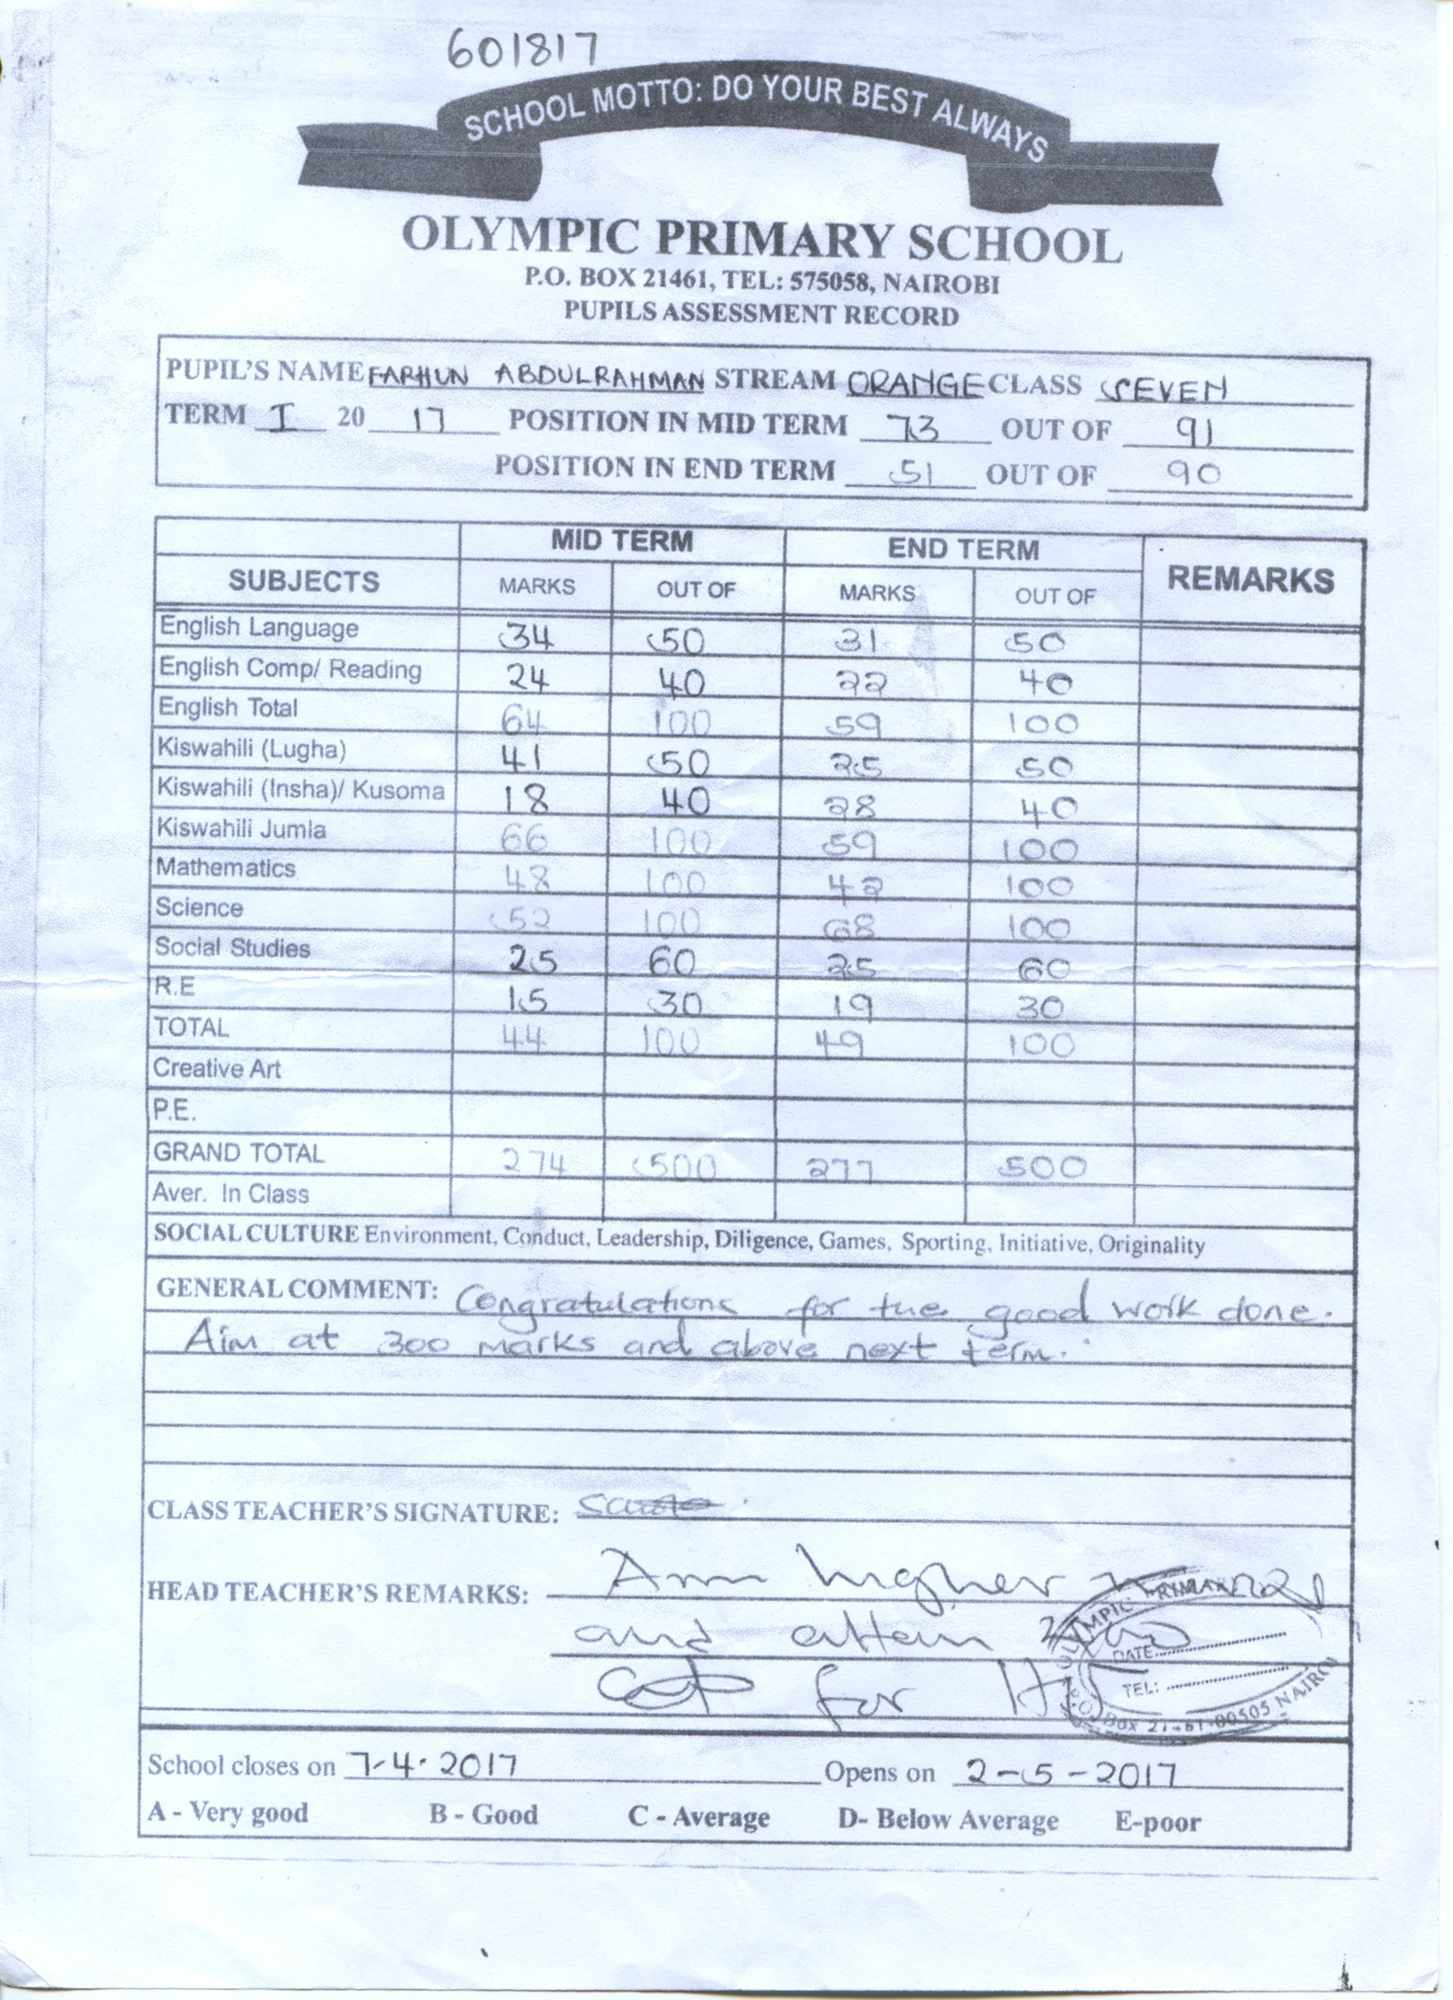 601817
SCHOOL MOTTO: DO YOUR BEST ALWAYS
OLYMPIC PRIMARY SCHOOL
P.O. BOX 21461, TEL: 575058, NAIROBI
PUPILS ASSESSMENT RECORD
PUPIL'S NAME FARHUN ABDULRAHMAN STREAM ORANGE CLASS SEVEN
TERM I 20 17 POSITION IN MID TERM 73 OUT OF 91
POSITION IN END TERM 51 OUT OF 90
MID TERM END TERM
SUBJECTS MARKS OUT OF MARKS OUT OF REMARKS
English Language 34 50 31 50
English Comp/ Reading 24 40 22 40
English Total 64 100 59 100
Kiswahili (Lugha) 41 50 25 50
Kiswahili (Insha)/ Kusoma 18 40 28 40
Kiswahili Jumla 66 100 59 100
Mathematics 48 100 42 100
Science 52 100 68 100
Social Studies 25 60 25 60
R.E 15 30 19 30
TOTAL 44 100 49 100
Creative Art
P.E.
GRAND TOTAL 274 500 277 500
Aver. In Class
SOCIAL CULTURE Environment, Conduct, Leadership, Diligence, Games, Sporting, Initiative, Originality
GENERAL COMMENT: Congratulations for the good work done.
Aim at 300 marks and above next term.
CLASS TEACHER'S SIGNATURE:
HEAD TEACHER'S REMARKS: Aim higher
and attain
for H/T
OLYMPIC PRIMARY
DATE
TEL:
School closes on 7-4-2017 Opens on 2-5-2017
A - Very good B - Good C - Average D- Below Average E-poor